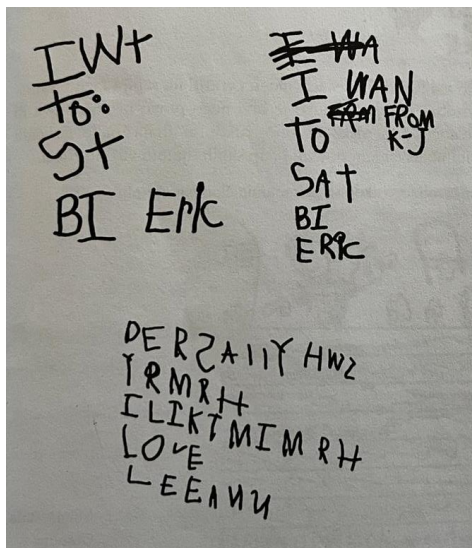 IWt
to:
St
BI Eric
I WA
I WAN
TO FROM
K-J
SAt
BI
ERIC
DERSALLY HW2
YRMRH
ILIKTMIMRH
LOVE
LEEANN